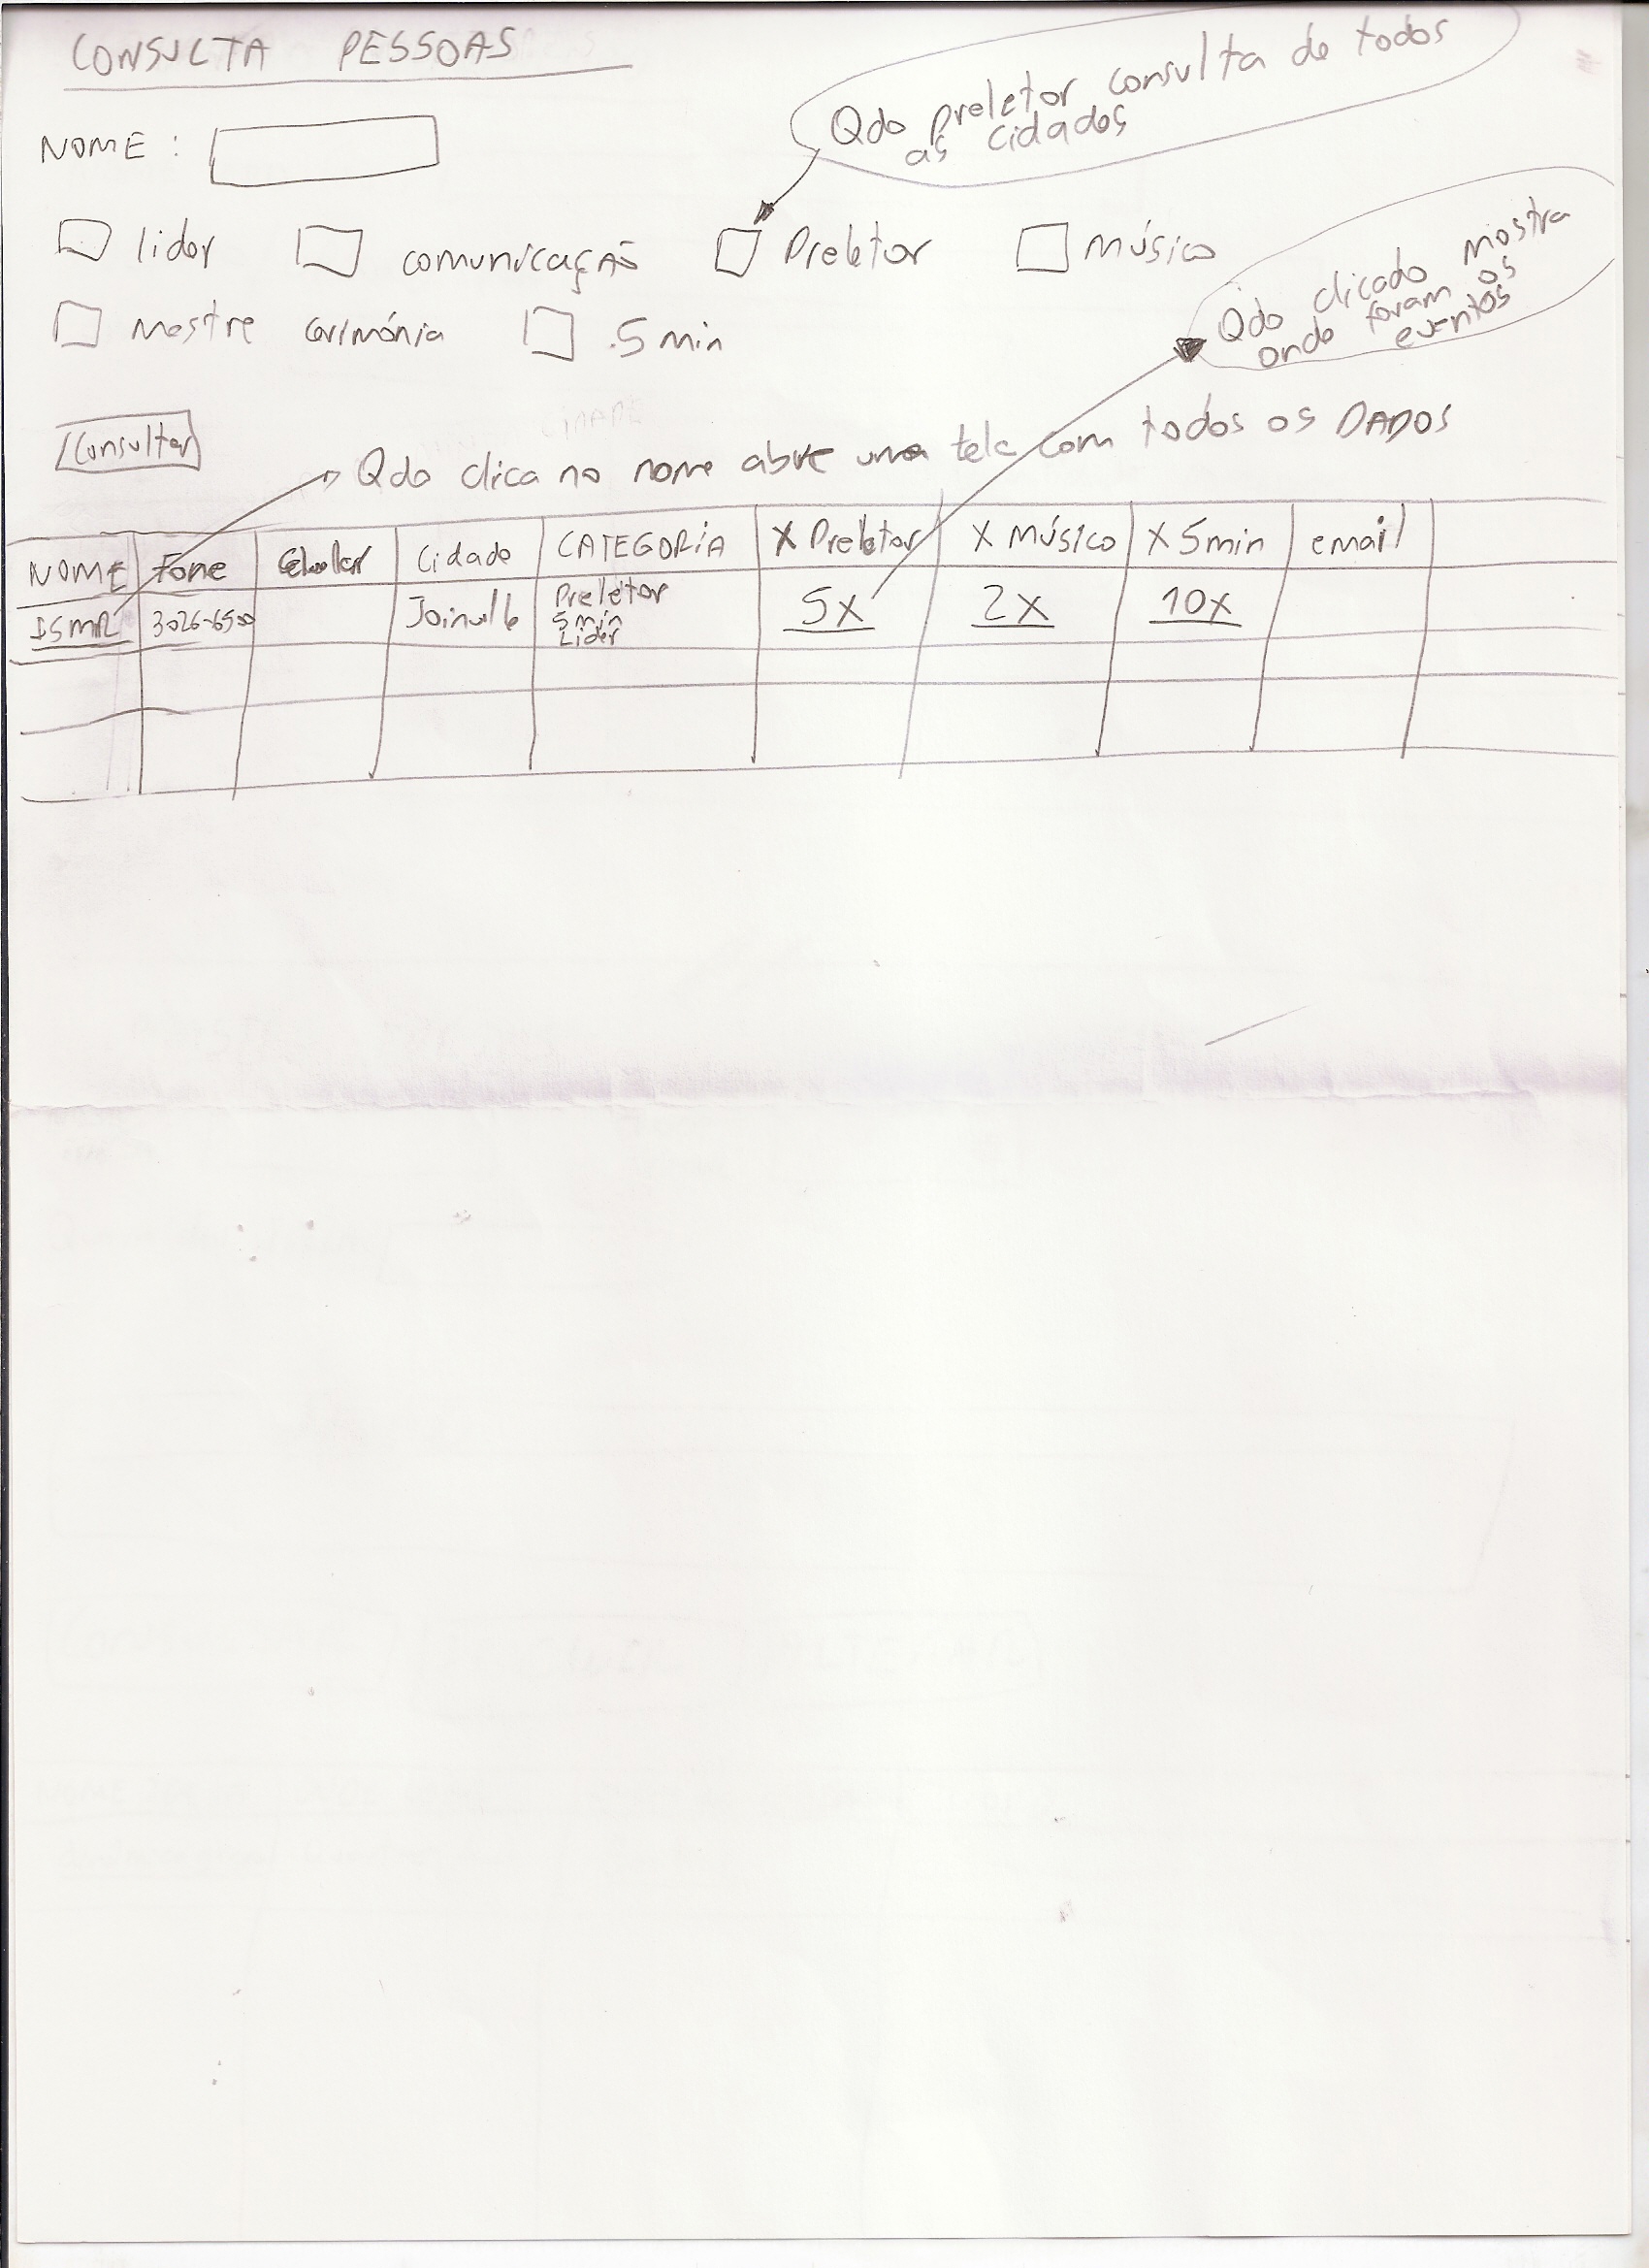 CONSULTA PESSOAS
Qdo preletor consulta de todos
as cidades
NOME :
lider comunicação Preletor músico
Qdo clicado mostra
onde foram os
eventos
mestre cerimônia 5 min
Consultar
Qdo clica no nome abre uma tela com todos os DADOS
NOME Fone Celular Cidade CATEGORIA X Preletor X músico X 5min email
3026-6500 Joinville Preletor 5x 2x 10x
5min
Lider